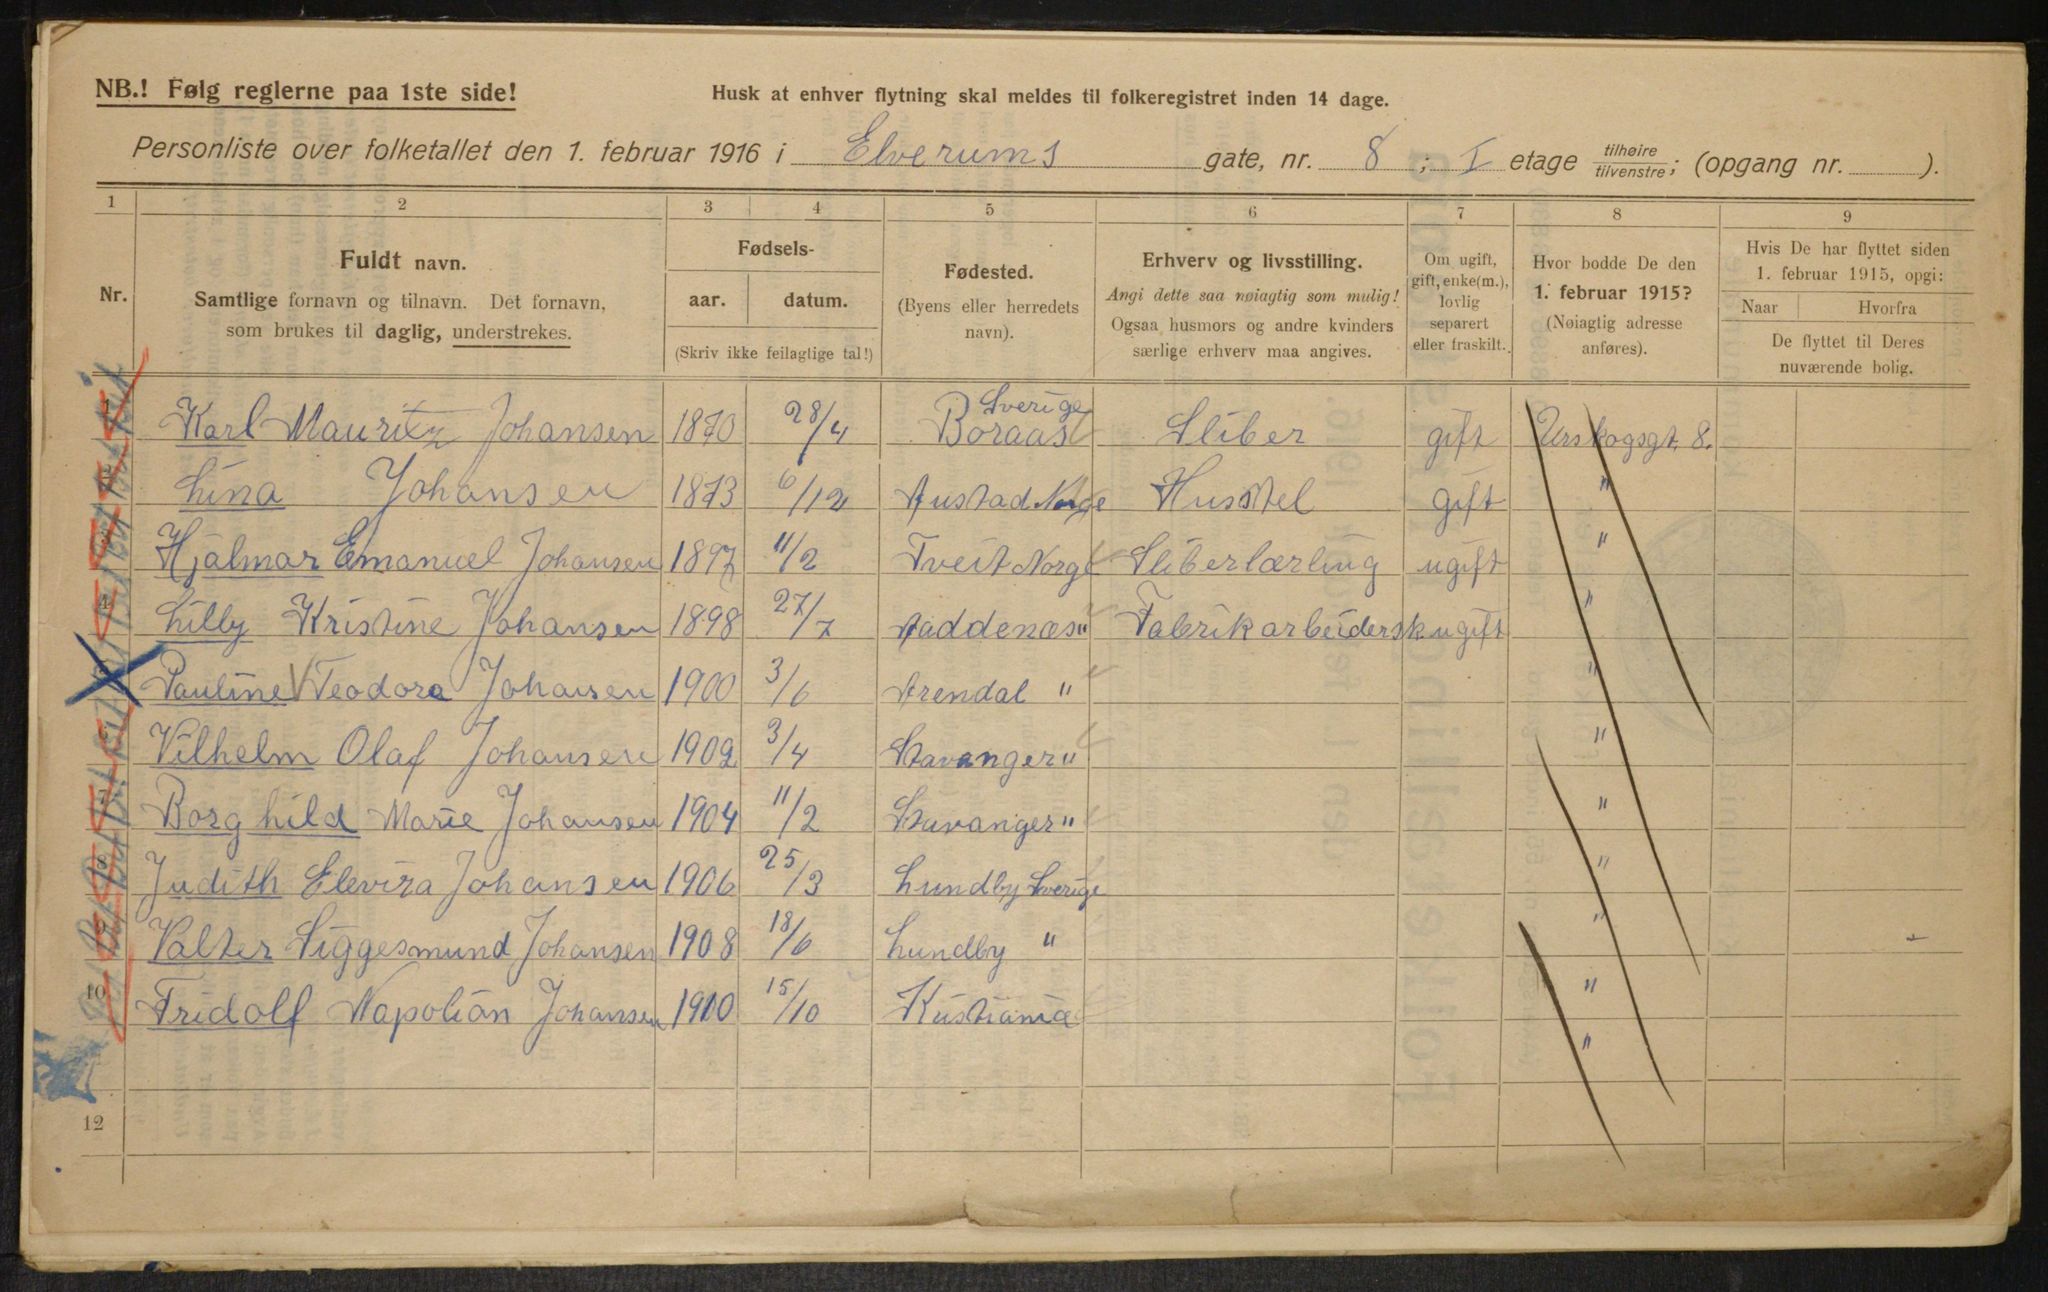 NB.! Følg reglerne paa 1ste side!
Husk at enhver flytning skal meldes til folkeregistret inden 14 dage.
Personliste over folketallet den 1. februar 1916 i Elverums gate, nr. 8 ; I etage tilhøire/tilvenstre; (opgang nr. ).
1 2 3 4 5 6 7 8 9
Nr.
Fuldt navn.
Samtlige fornavn og tilnavn. Det fornavn,
som brukes til daglig, understrekes.
Fødsels-
aar. datum.
(Skriv ikke feilagtige tal!)
Fødested.
(Byens eller herredets
navn).
Erhverv og livsstilling.
Angi dette saa nøiagtig som mulig!
Ogsaa husmors og andre kvinders
særlige erhverv maa angives.
Om ugift,
gift, enke(m.),
lovlig
separert
eller fraskilt.
Hvor bodde De den
1. februar 1915?
(Nøiagtig adresse
anføres).
Hvis De har flyttet siden
1. februar 1915, opgi:
Naar Hvorfra
De flyttet til Deres
nuværende bolig.
Karl Mauritz Johansen 1870 28/4 Sverige Boraas Sliber gift Urskogsgt. 8.
Lina Johansen 1873 6/12 Austad Norge Husstel gift "
3 Hjalmar Emanuel Johansen 1897 11/2 Tveit Norge Sliberlærling ugift "
4 Lilly Kristine Johansen 1898 27/7 Faddenæs " Fabrikarbeidersk ugift "
Pauline Teodora Johansen 1900 3/6 Arendal " "
Vilhelm Olaf Johansen 1902 3/4 Stavanger " "
7 Borghild Marie Johansen 1904 11/2 Stavanger " "
8 Judith Elevira Johansen 1906 25/3 Lundby Sverige "
Valter Siggesmund Johansen 1908 18/6 Lundby " "
10 Fridolf Napolian Johansen 1910 15/10 Kristiania "
"
12